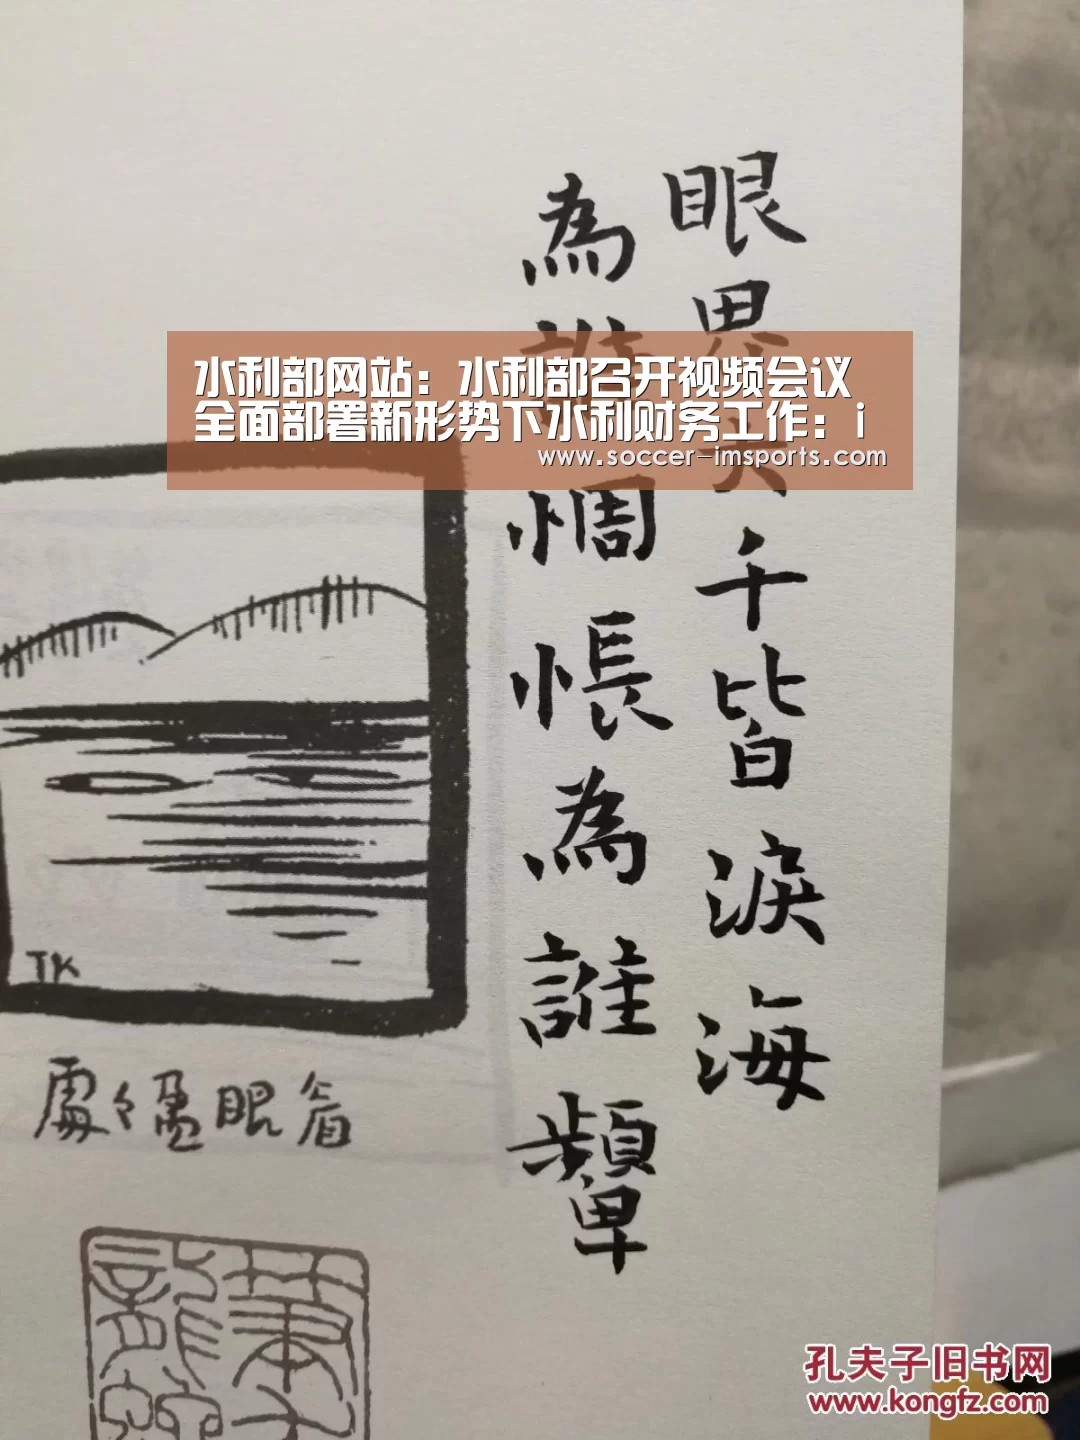 眼界大千皆淚海
為誰惆悵為誰顰
水利部网站：水利部召开视频会议
全面部署新形势下水利财务工作：i
www.soccer-imsports.com
TK
眼
孔夫子旧书网
www.kongfz.com